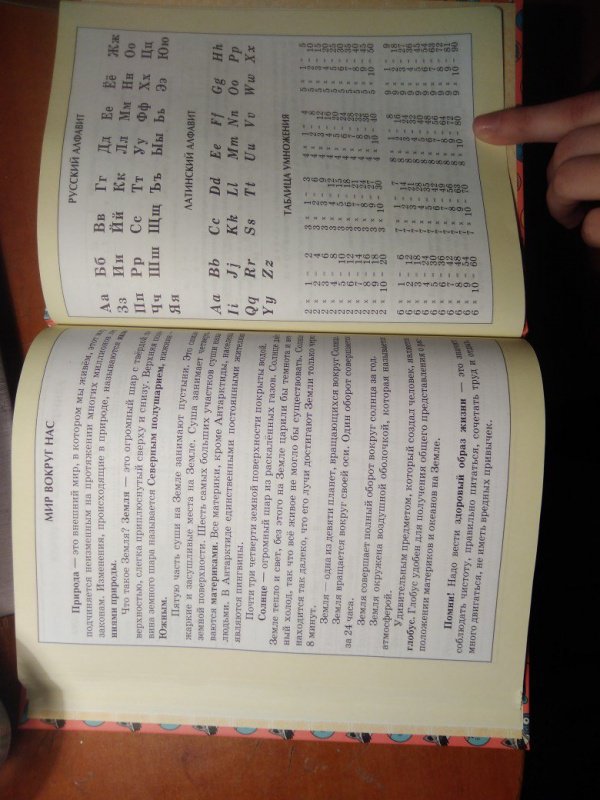 МИР ВОКРУГ НАС
Природа — это внешний мир, в котором мы живём,
подчиняется неизменным на протяжении многих миллионов
законам. Изменения, происходящие в природе, называются
природы.
Что такое Земля? Земля — это огромный шар с твёрдой
верхностью, слегка приплюснутый сверху и снизу. Верхняя
вина земного шара называется Северным полушарием,
Южным.
Пятую часть суши на Земле занимают пустыни. Это
жаркие и засушливые места на Земле. Суша занимает
земной поверхности. Шесть самых больших участков суши
ваются материками. Все материки, кроме Антарктиды,
людьми. В Антарктиде единственными постоянными
являются пингвины.
Почти три четверти земной поверхности покрыты водой.
Солнце — огромный шар из раскалённых газов. Солнце
Земле тепло и свет, без этого на Земле царили бы темнота и
ный холод, так что всё живое не могло бы существовать.
находится так далеко, что его лучи достигают Земли только
8 минут.
Земля — одна из девяти планет, вращающихся вокруг
Земля вращается вокруг своей оси. Один оборот совершает
за 24 часа.
Земля совершает полный оборот вокруг солнца за год.
Земля окружена воздушной оболочкой, которая
атмосферой.
Удивительным предметом, который создал человек,
глобус. Глобус удобен для получения общего представления о
положения материков и океанов на Земле.
Помни! Надо вести здоровый образ жизни — это
соблюдать чистоту, правильно питаться, сочетать труд и
много двигаться, не иметь вредных привычек.
РУССКИЙ АЛФАВИТ
Аа Бб Вв Гг Дд Ее Ёё Жж
Зз Ии Йй Кк Лл Мм Нн Оо
Пп Рр Сс Тт Уу Фф Хх Цц
Чч Шш Щщ Ъъ Ыы Ьь Ээ Юю
Яя
ЛАТИНСКИЙ АЛФАВИТ
Aa Bb Cc Dd Ee Ff Gg Hh
Ii Jj Kk Ll Mm Nn Oo Pp
Qq Rr Ss Tt Uu Vv Ww Xx
Yy Zz
ТАБЛИЦА УМНОЖЕНИЯ
2 x 1 – 2 3 x 1 – 3 4 x 1 – 4 5 x 1 – 5
2 x 2 – 4 3 x 2 – 6 4 x 2 – 8 5 x 2 – 10
2 x 3 – 6 3 x 3 – 9 4 x 3 – 12 5 x 3 – 15
2 x 4 – 8 3 x 4 – 12 4 x 4 – 16 5 x 4 – 20
2 x 5 – 10 3 x 5 – 15 4 x 5 – 20 5 x 5 – 25
2 x 6 – 12 3 x 6 – 18 4 x 6 – 24 5 x 6 – 30
2 x 7 – 14 3 x 7 – 21 4 x 7 – 28 5 x 7 – 35
2 x 8 – 16 3 x 8 – 24 4 x 8 – 32 5 x 8 – 40
2 x 9 – 18 3 x 9 – 27 4 x 9 – 36 5 x 9 – 45
2 x 10 – 20 3 x 10 – 30 4 x 10 – 40 5 x 10 – 50
6 x 1 – 6 7 x 1 – 7 8 x 1 – 8 9 x 1 – 9
6 x 2 – 12 7 x 2 – 14 8 x 2 – 16 9 x 2 – 18
6 x 3 – 18 7 x 3 – 21 8 x 3 – 24 9 x 3 – 27
6 x 4 – 24 7 x 4 – 28 8 x 4 – 32 9 x 4 – 36
6 x 5 – 30 7 x 5 – 35 8 x 5 – 40 9 x 5 – 45
6 x 6 – 36 7 x 6 – 42 8 x 6 – 48 9 x 6 – 54
6 x 7 – 42 7 x 7 – 49 8 x 7 – 56 9 x 7 – 63
6 x 8 – 48 7 x 8 – 56 8 x 8 – 64 9 x 8 – 72
6 x 9 – 54 7 x 9 – 63 8 x 9 – 72 9 x 9 – 81
6 x 10 – 60 7 x 10 – 70 8 x 10 – 80 9 x 10 – 90